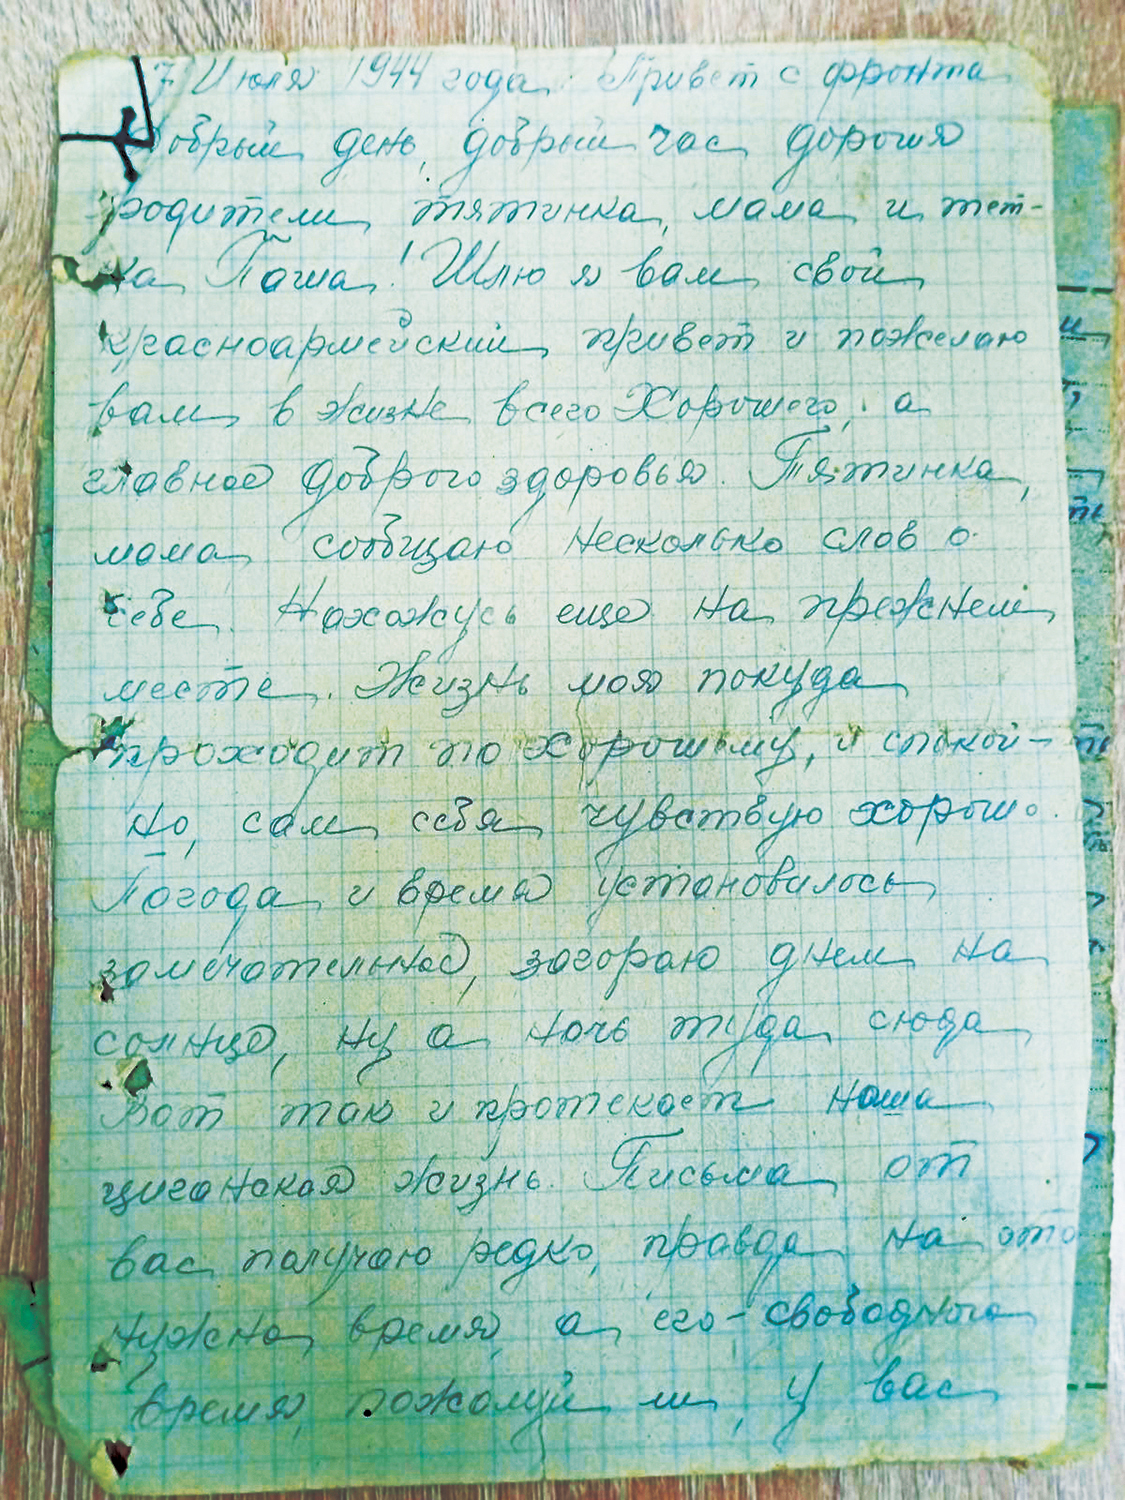 7 Июля 1944 года. Привет с фронта
Добрый день, добрый час дорогия
родители тятинка, мама и тет-
ка Паша! Шлю я вам свой
красноармейский привет и пожелаю
вам в жизне всего Хорошего, а
главное доброго здоровья. Тятинка,
мама сообщаю несколько слов о
себе. Нахожусь еще на прежнем
месте. Жизнь моя покуда
проходит по хорошому, и спокой-
но, сам себя чувствую хорошо.
Погода и время установилось
замечательное, загораю днем на
солнце, ну а ночь туда сюда
Вот так и протекает наша
циганская жизнь. Письма от
вас получаю редко, правда на это
нужна время, а его-свободного
время, пожалуй и, у вас